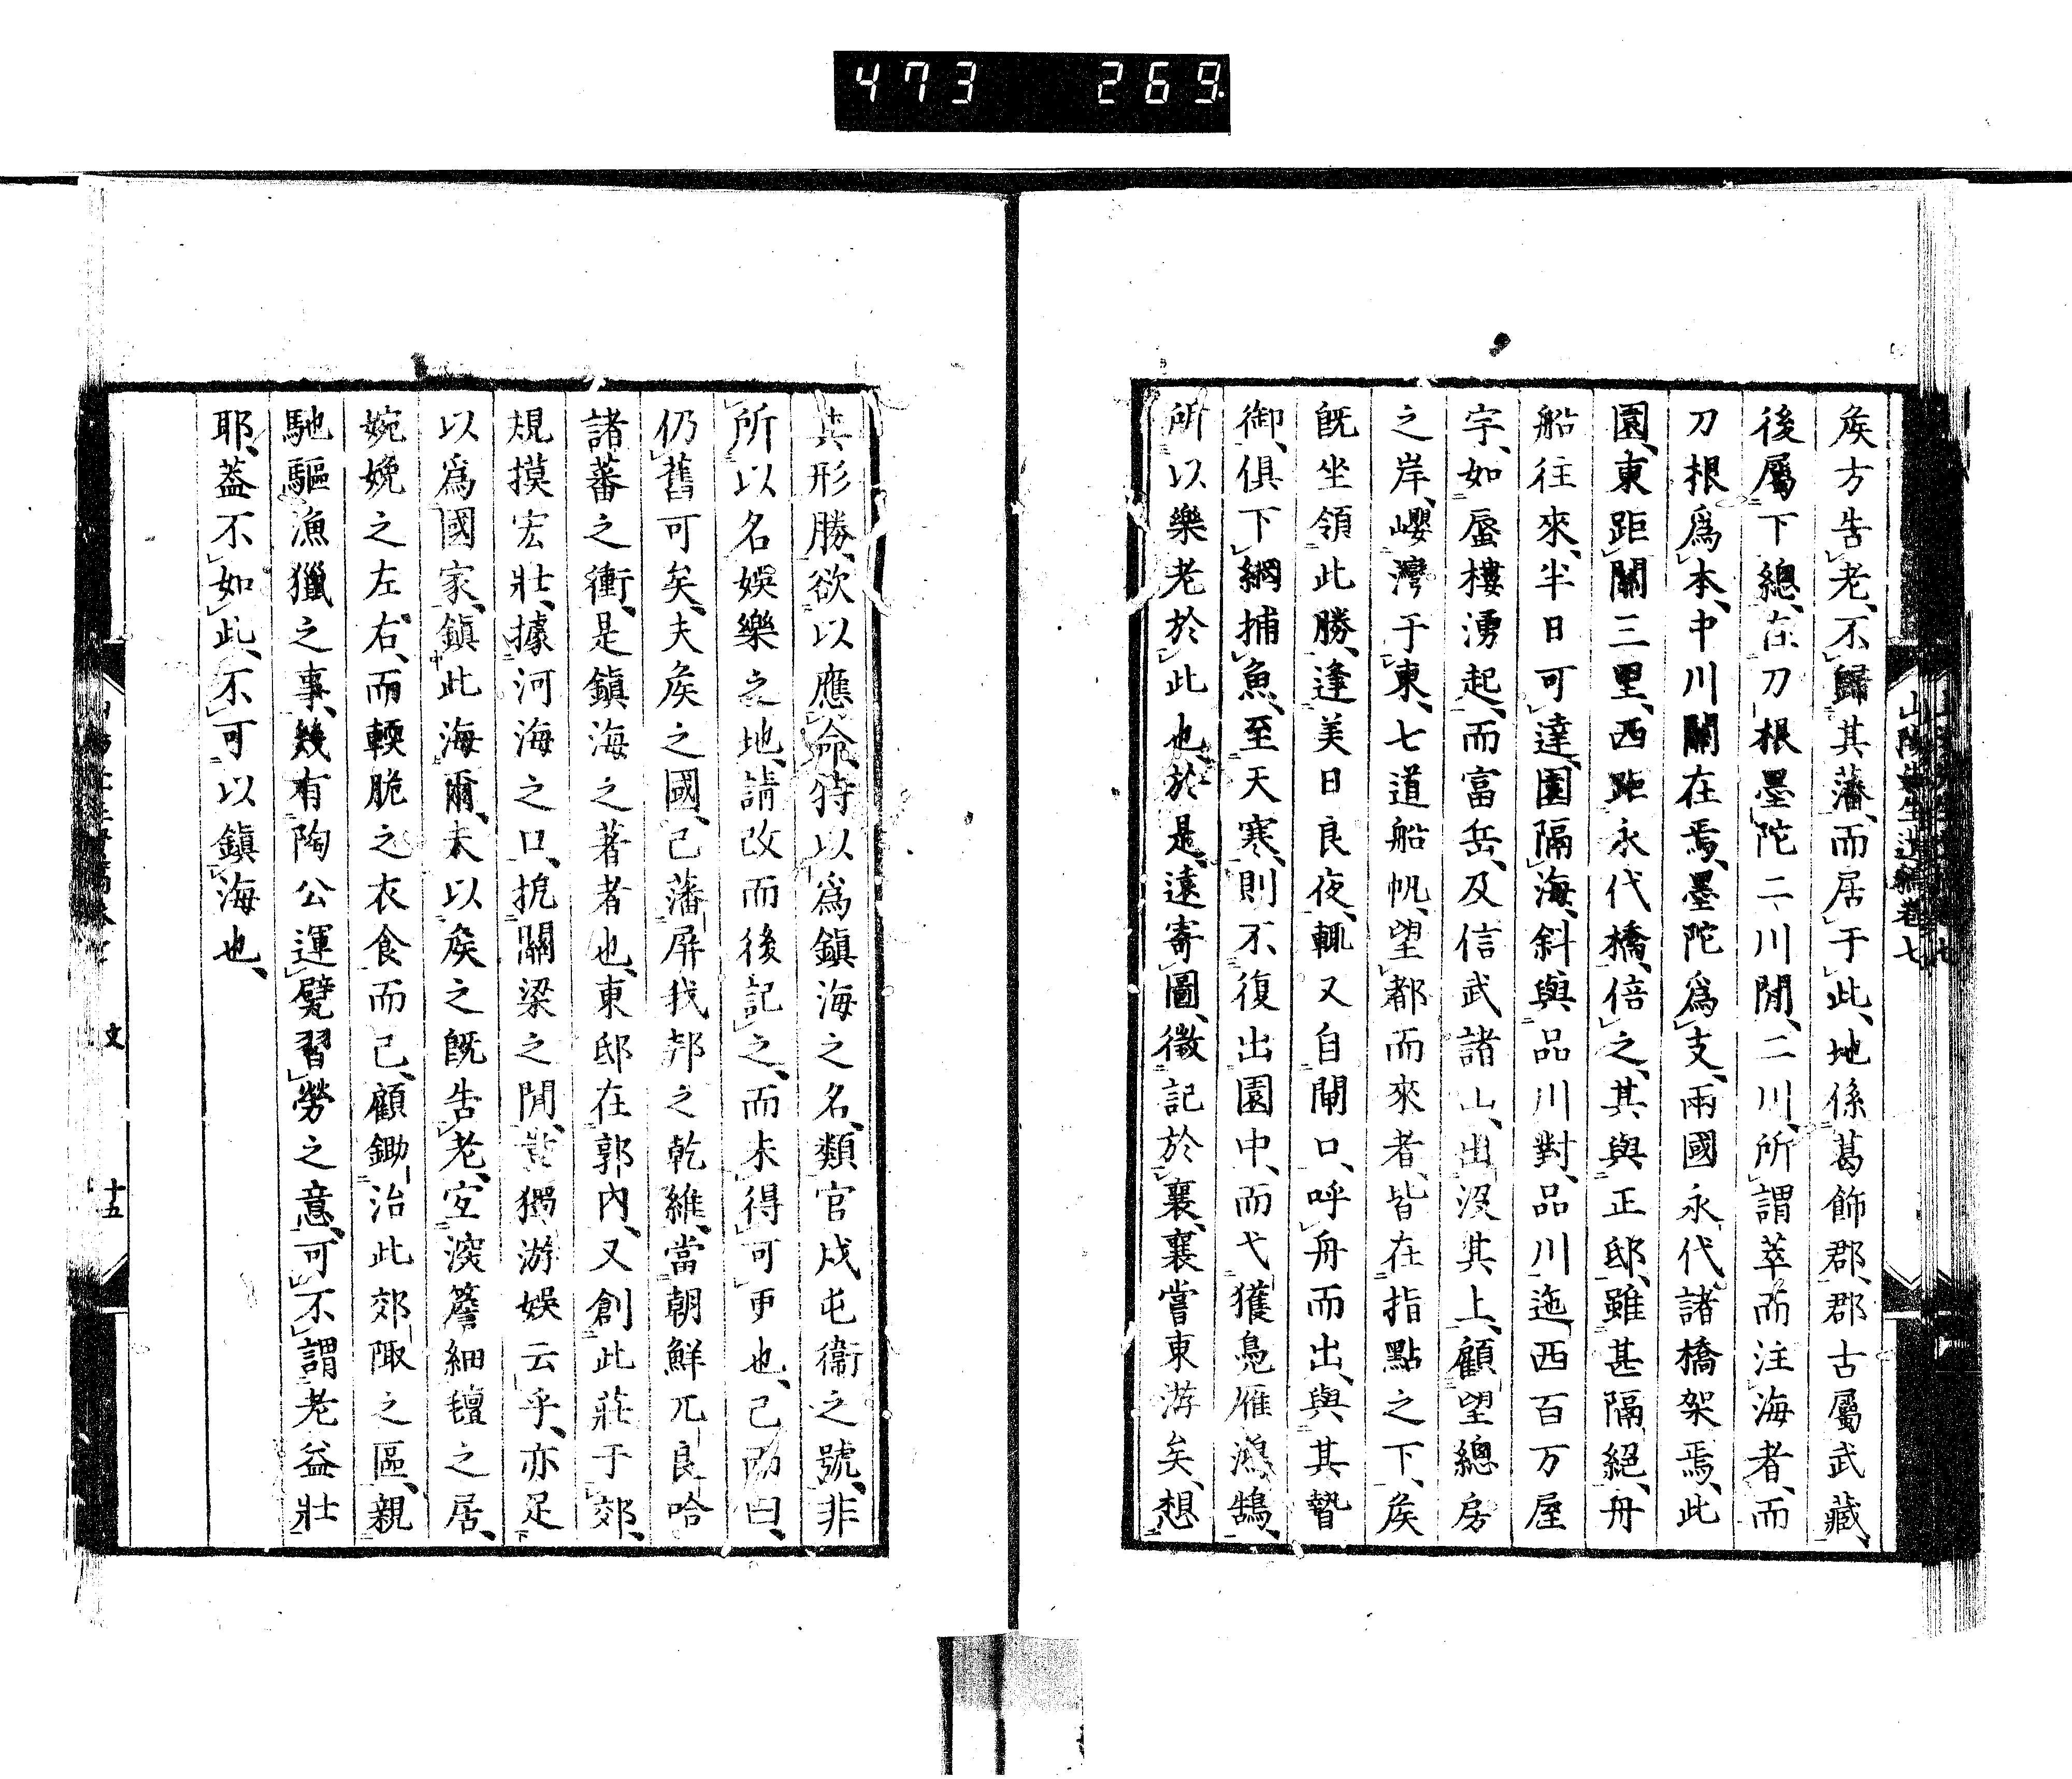 473 269
侯方告老、不歸其藩、而居于此、地係葛飾郡、郡古屬武藏、
後屬下總、在刀根墨陀二川間、二川、所謂萃而注海者、而
刀根爲本、中川關在焉、墨陀爲支、兩國永代、諸橋架焉、此
園、東距關三里、西距永代橋、倍之、其與正邸、雖甚隔絕、舟
船往來、半日可達、園隔海、斜與品川對、品川迤西百万屋
宇、如蜃樓湧起、而富岳、及信武諸山、出沒其上、顧望總房
之岸、巊灣于東、七道船帆、望都而來者、皆在指點之下、侯
既坐領此勝、逢美日良夜、輒又自閘口、呼舟而出、與其贄
御、俱下網捕魚、至天寒、則不復出園中、而弋獲鳧雁鴻鵠、
所以樂老於此也、於是、遠寄圖、徵記於襄、襄嘗東游矣、想
其形勝、欲以應命、特以爲鎭海之名、類官戍屯衞之號、非
所以名娛樂之地、請改而後記之、而未得可更也、已而曰、
仍舊可矣、夫侯之國、已藩屏我邦之乾維、當朝鮮兀良哈
諸蕃之衝、是鎭海之著者也、東邸在郭內、又創此莊于郊、
規摸宏壯、據河海之口、扼關梁之間、豈獨游娛云乎、亦足
以爲國家、鎭此海爾、夫以侯之既告老、宜深簷細氊之居、
婉娩之左右、而輭脆之衣食而已、顧鋤治此郊陬之區、親
馳驅漁獵之事、幾有陶公運甓習勞之意、可不謂老益壯
耶、蓋不如此、不可以鎭海也、
山陽先生遺稿卷七
文
十五